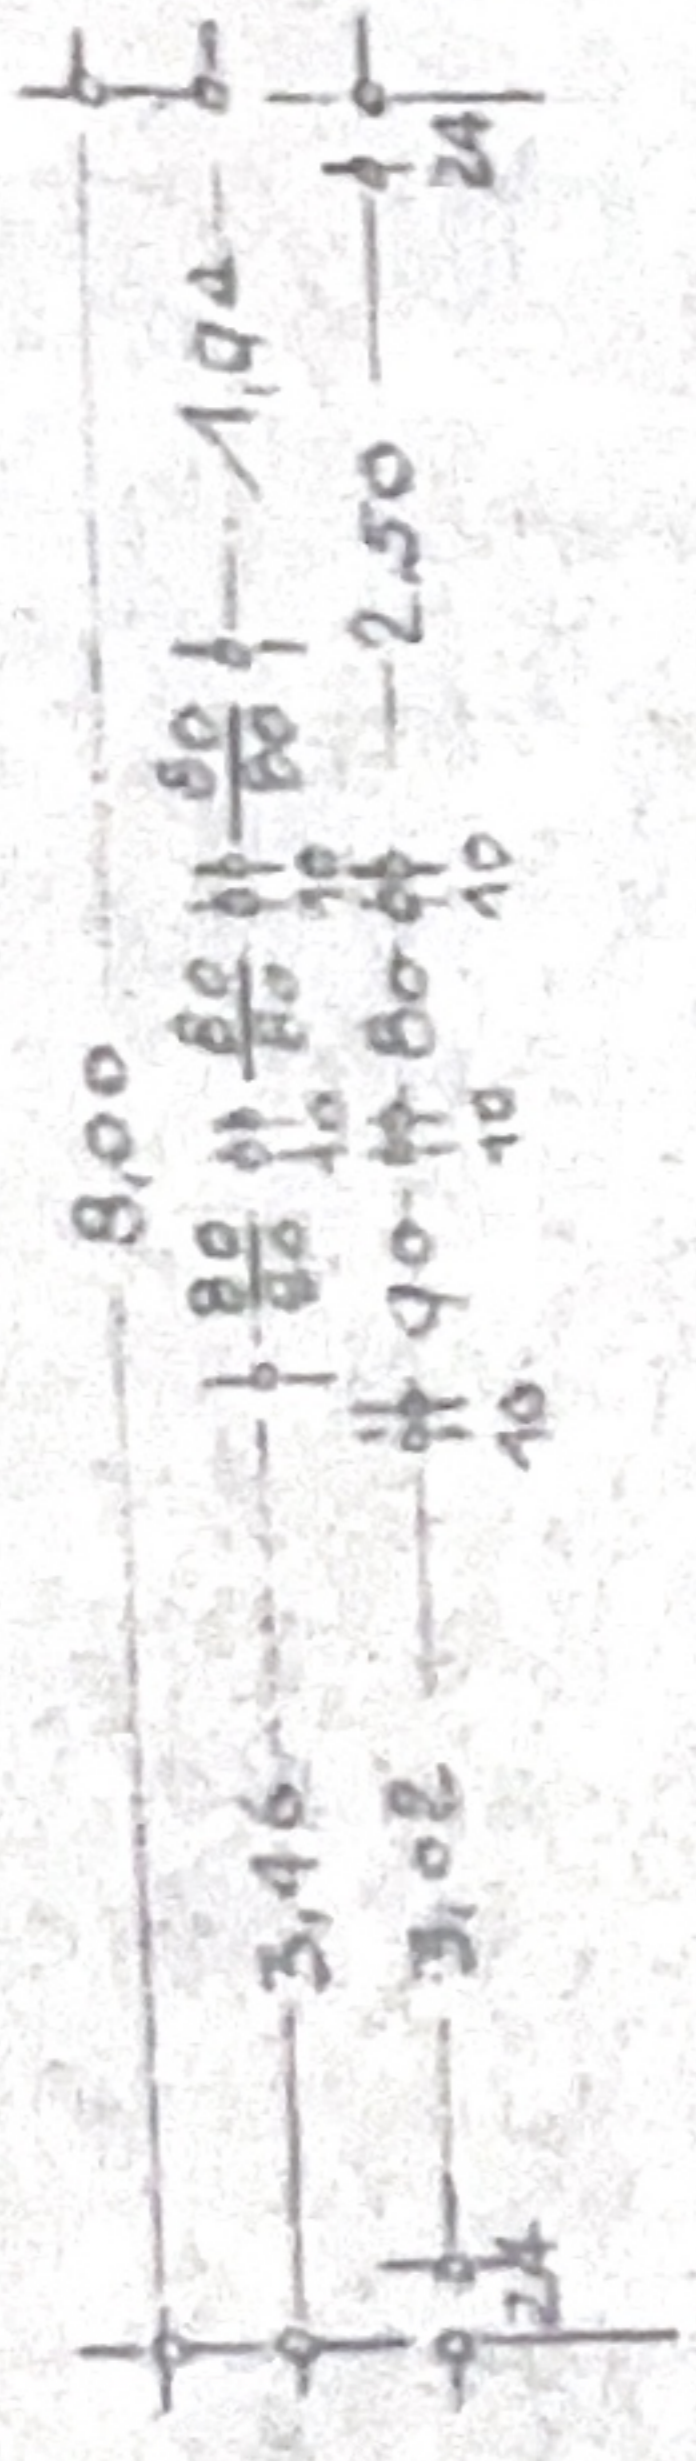 8,00
3,46 80/80 10 80/80 10 80/80 1,94
24 3,02 10 90 10 80 10 2.50 24